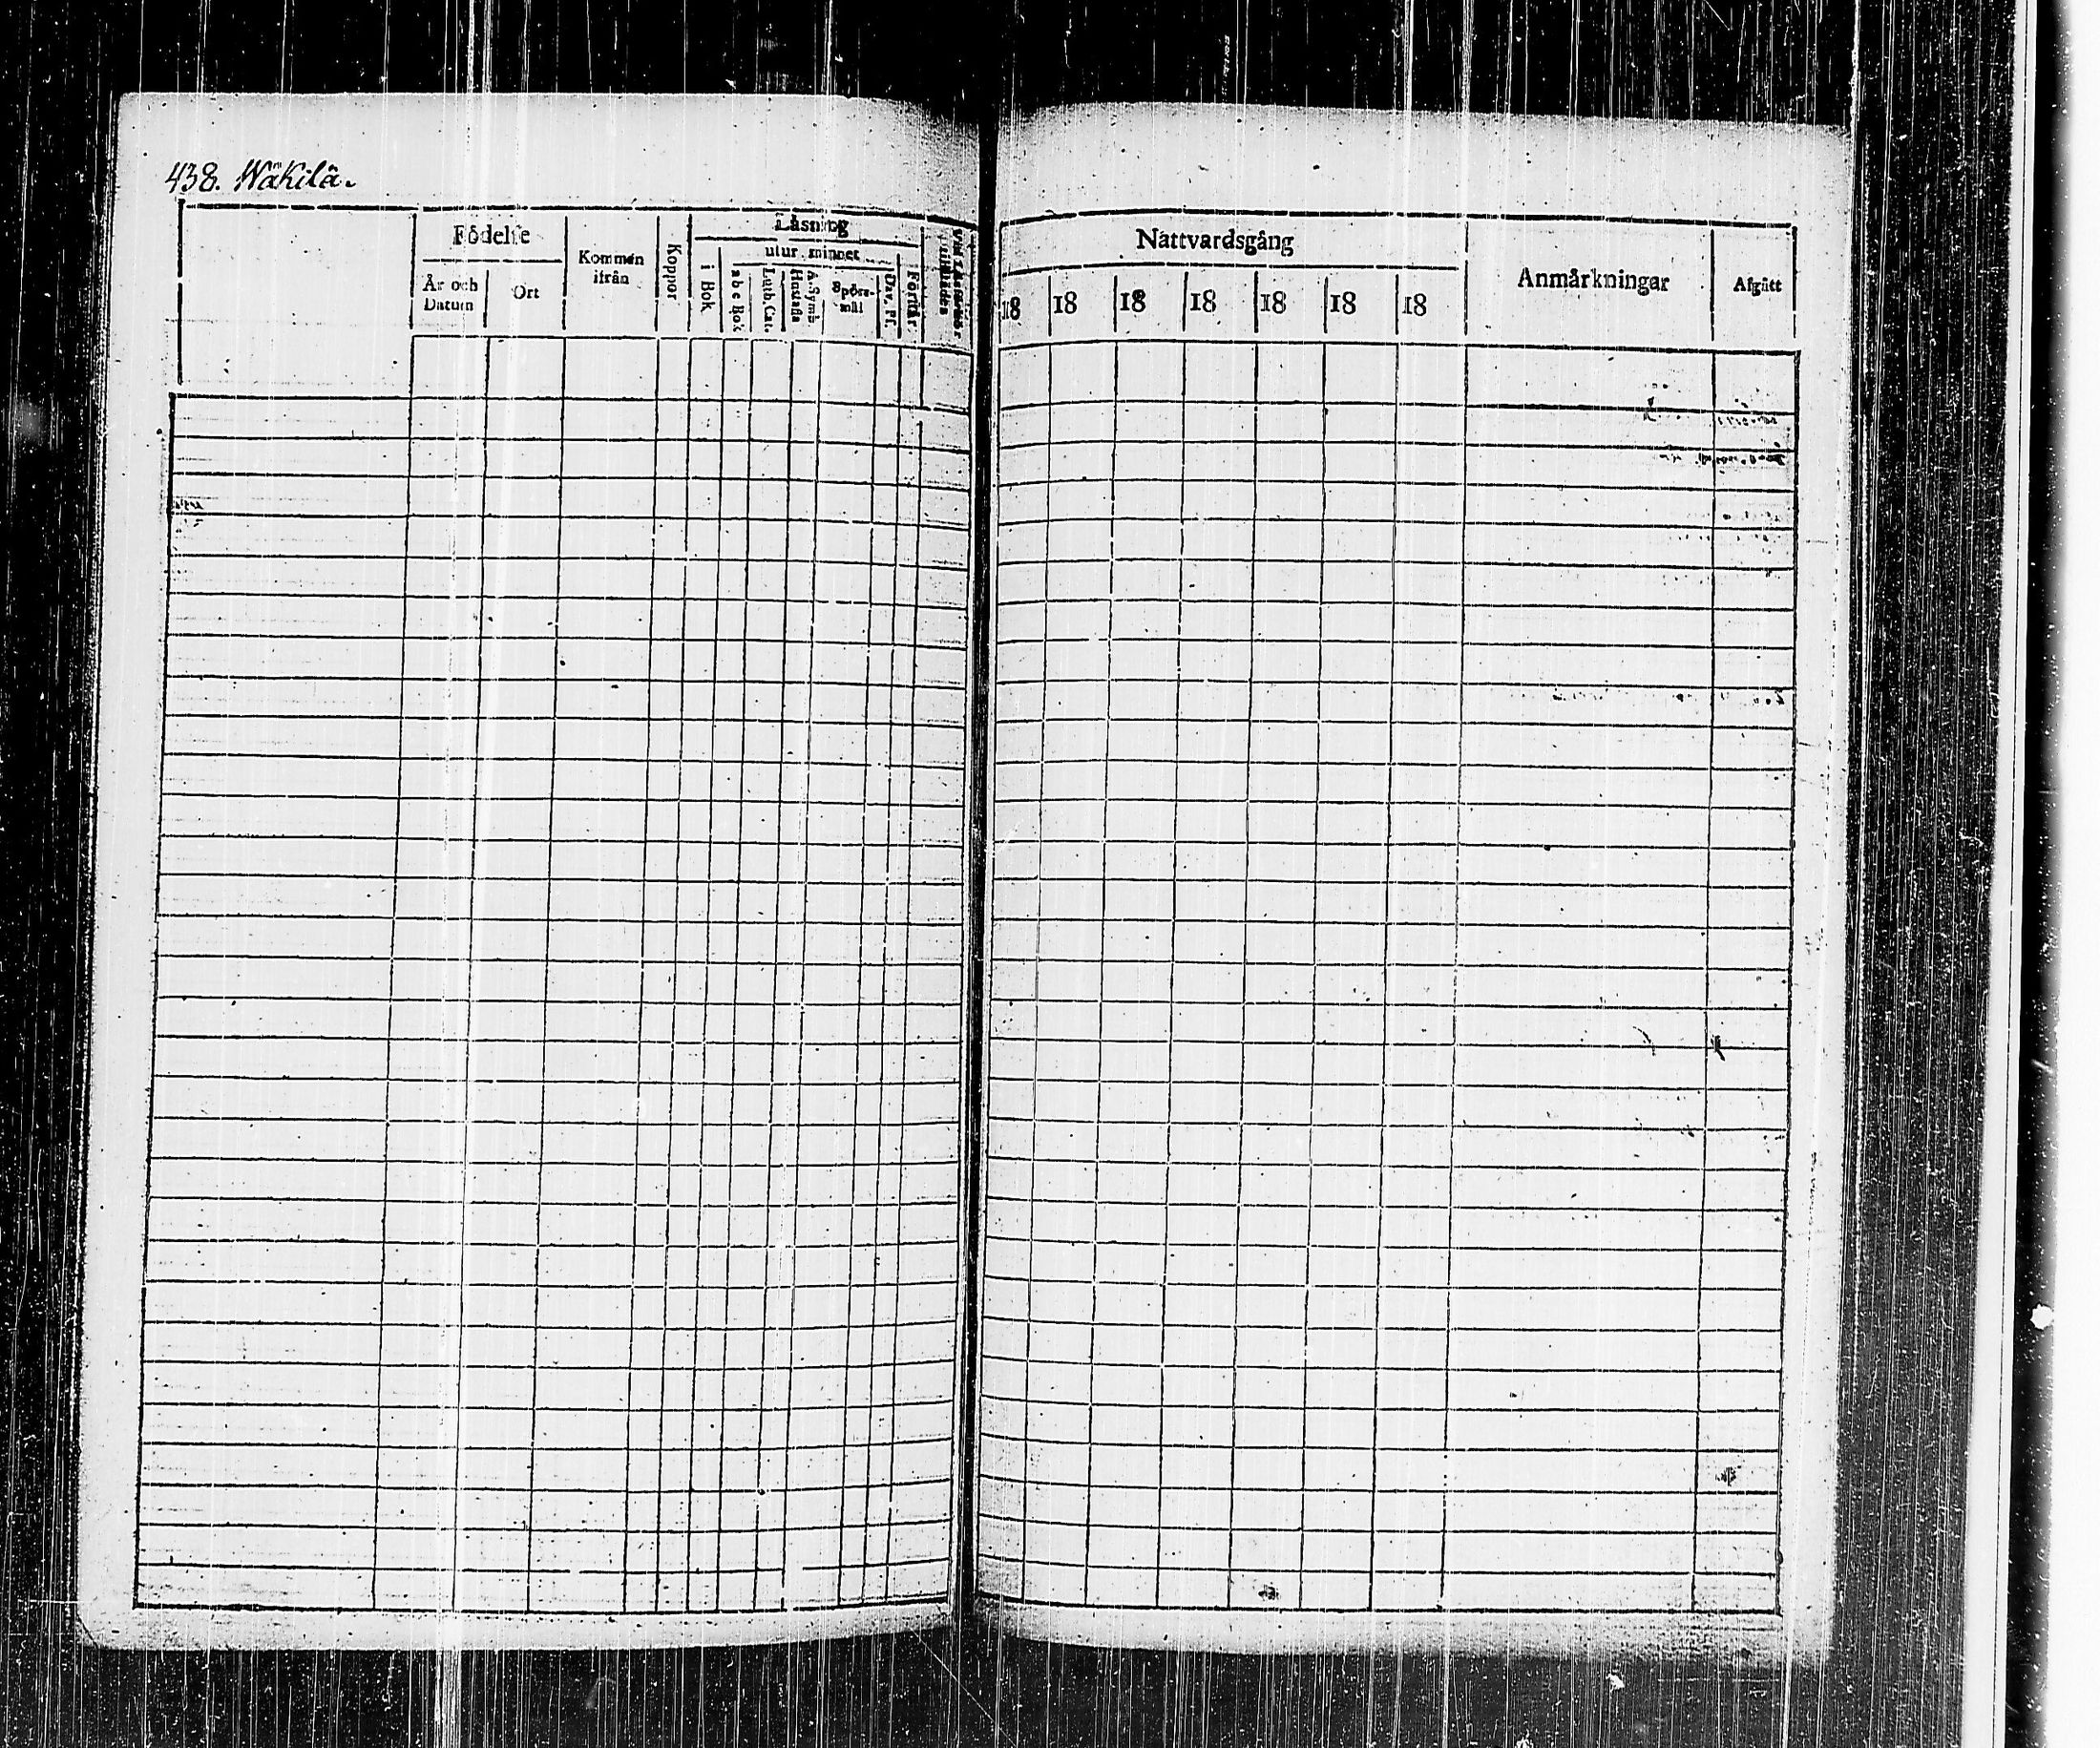 438. Wäkilä.
Födelse
År och Datum
Ort
Kommen ifrån
Koppor
Läsning
utur minnet
i Bok
abc Bok
Luth. Cat.
Hustafla
A. Symb
Spörs-mål
Dav. Ps.
Förstår
Nattvardsgång
18 18 18 18 18 18 18
Anmärkningar
Afgått